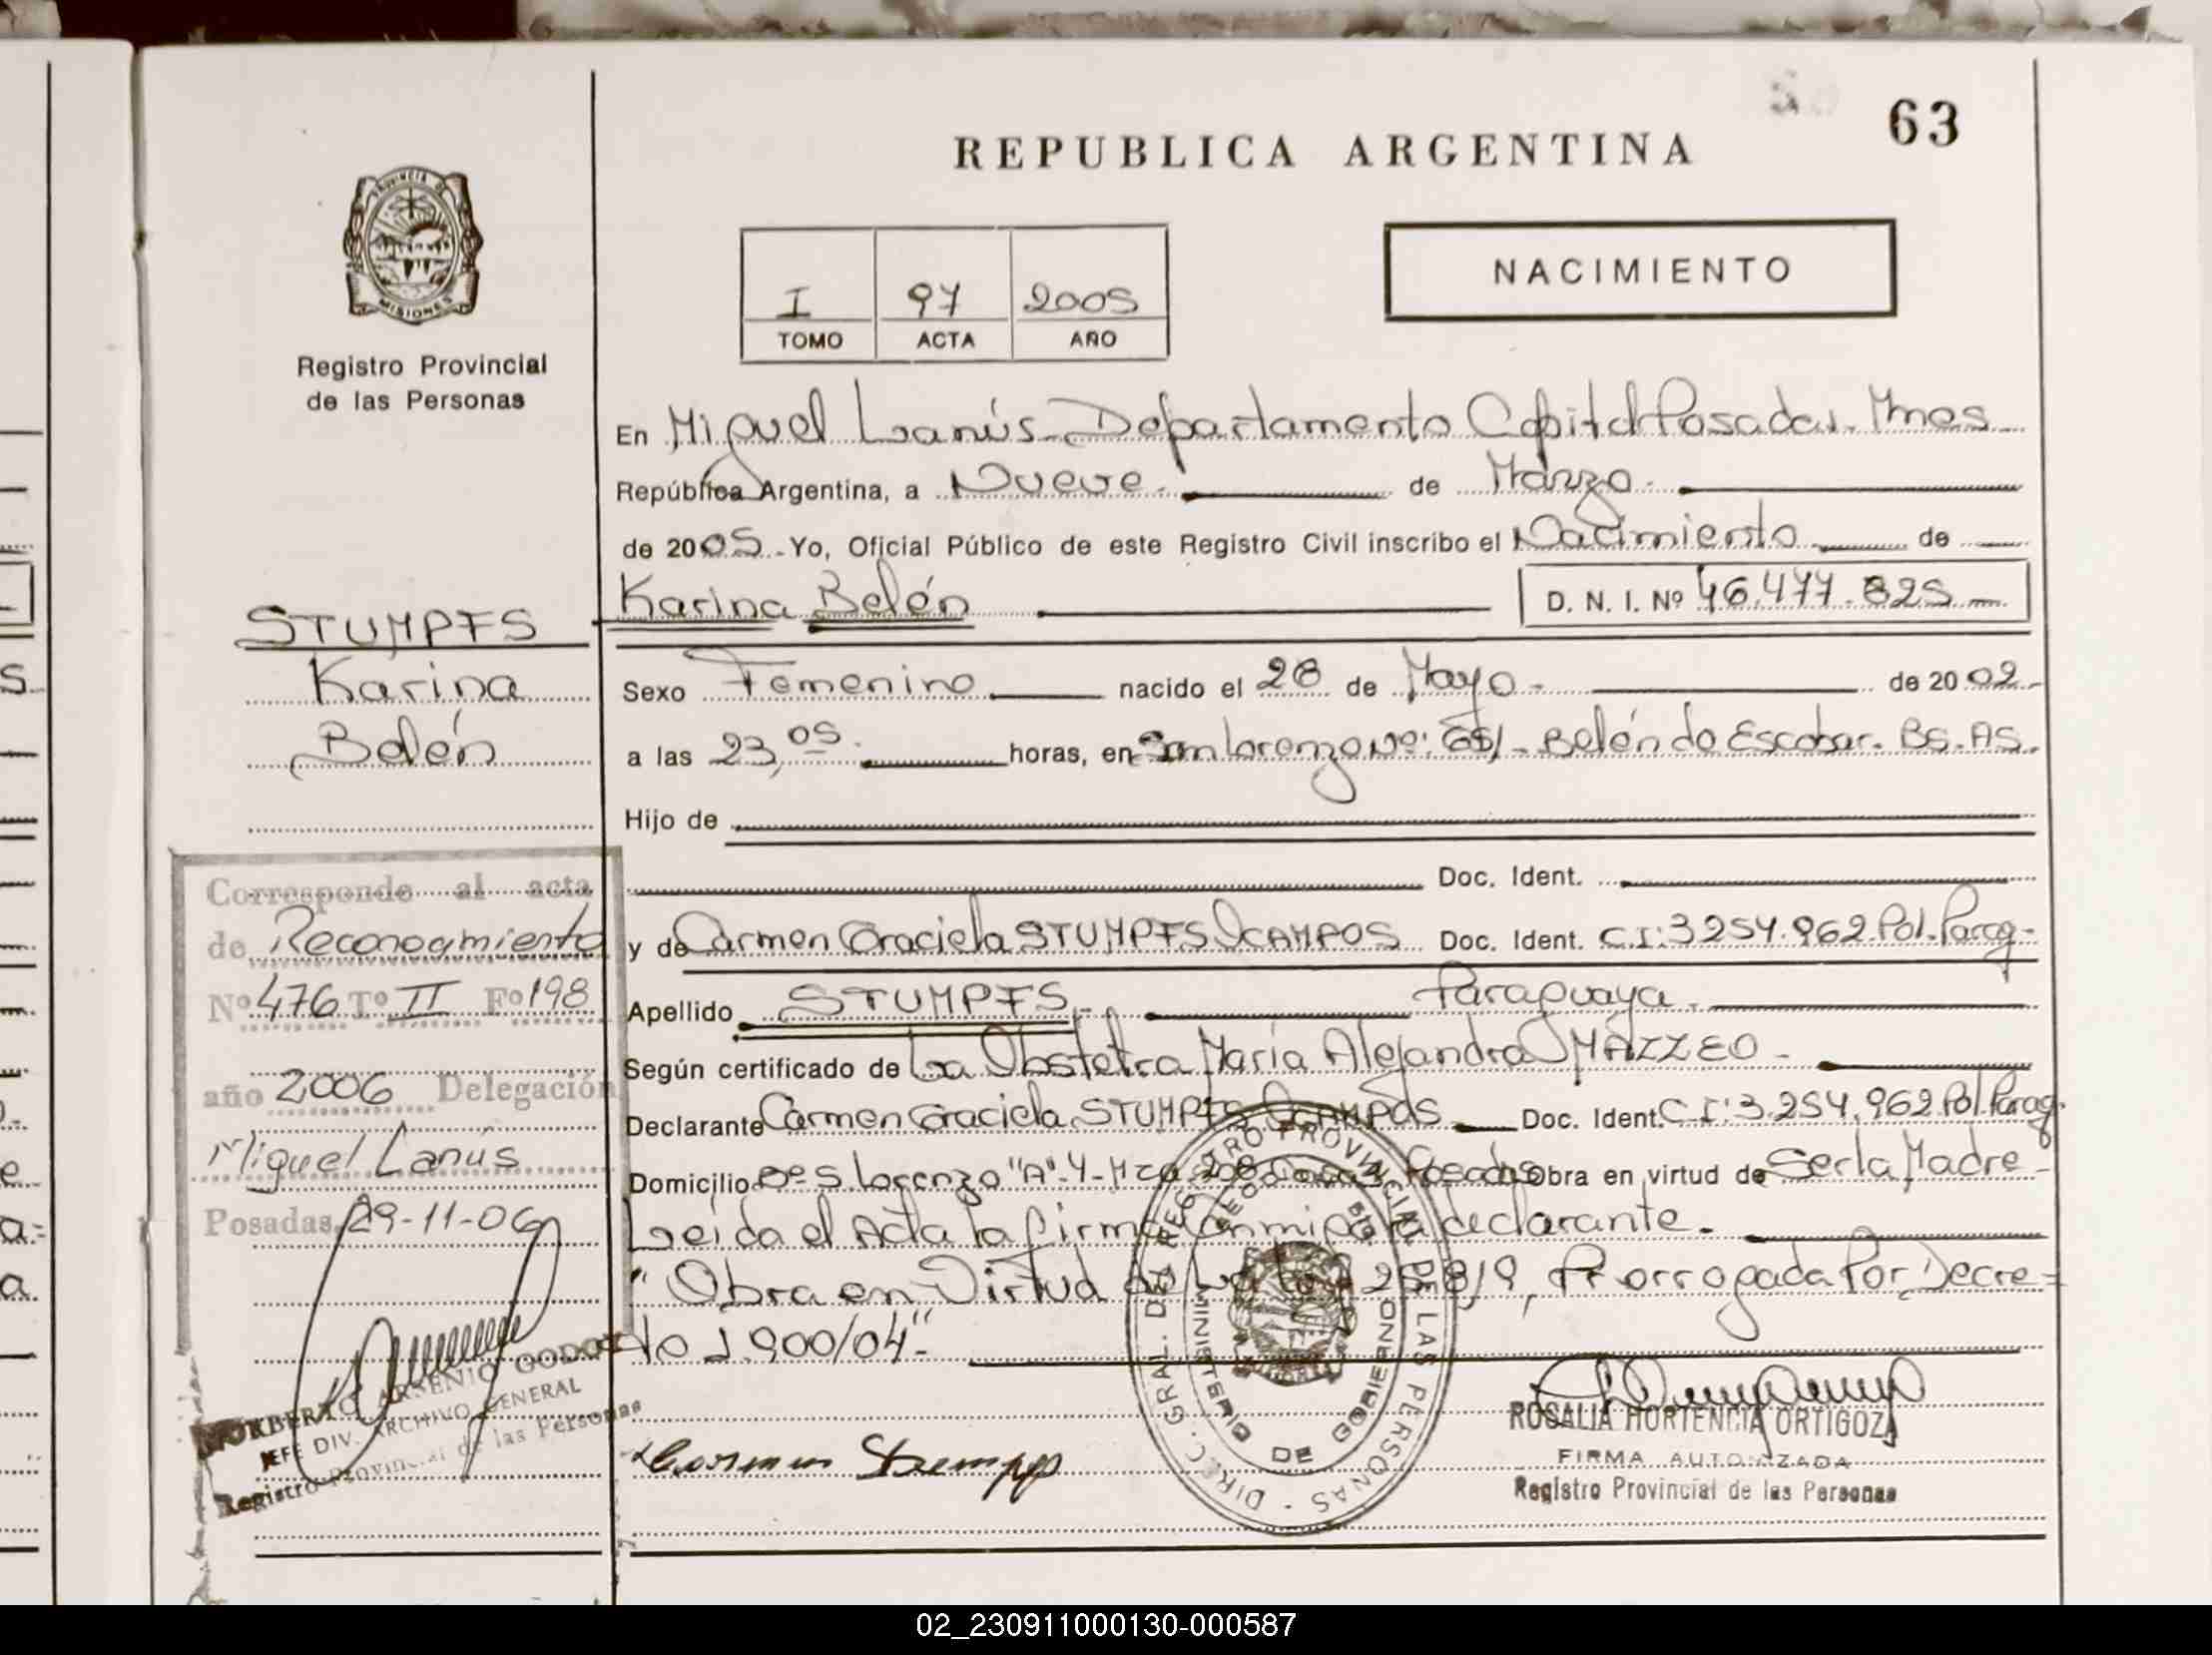 63
REPUBLICA ARGENTINA
PROVINCIA DE
MISIONES
Registro Provincial
de las Personas
I 97 2005
TOMO ACTA AÑO
NACIMIENTO
En Miguel Lanús - Departamento Capital Posadas. Mnes
República Argentina, a Nueve. de Marzo.
de 2005. Yo, Oficial Público de este Registro Civil inscribo el Nacimiento de
Karina Belén D. N. I. Nº 46.477.825
STUMPFS
Karina
Belén
Sexo Femenino nacido el 28 de Mayo. de 2002.
a las 23,05. horas, en San Lorenzo Nº: 651 - Belén de Escobar. Bs. As.
Hijo de
Doc. Ident.
y de Carmen Graciela STUMPFS OCAMPOS Doc. Ident. C.I: 3254.962 Pol. Parag-
Apellido STUMPFS Paraguaya.
Según certificado de La Obstetra María Alejandra MAZZEO -
Declarante Carmen Graciela STUMPFS OCAMPOS Doc. Ident. C.I: 3.254.962 Pol. Parag.
Domicilio Bº S. Lorenzo "A" 4 - Mza Posadas Obra en virtud de Ser la Madre -
Leída el Acta la firma conmigo la declarante.
"Obra en Virtud de la Ley 25819, Prorrogada Por Decre=
to 1.900/04"-
Corresponde al acta
de Reconocimiento
Nº 476 Tº II Fº 198
año 2006 Delegación
Miguel Lanús
Posadas, 29-11-06
NORBERTO ARSENIO GODOY
JEFE DIV. ARCHIVO GENERAL
Registro Provincial de las Personas
Carmen Stumpfs
DIREC. GRAL. DEL REGISTRO PROVINCIAL DE LAS PERSONAS
MINISTERIO DE GOBIERNO
ROSALIA HORTENCIA ORTIGOZA
FIRMA AUTORIZADA
Registro Provincial de las Personas
02_230911000130-000587